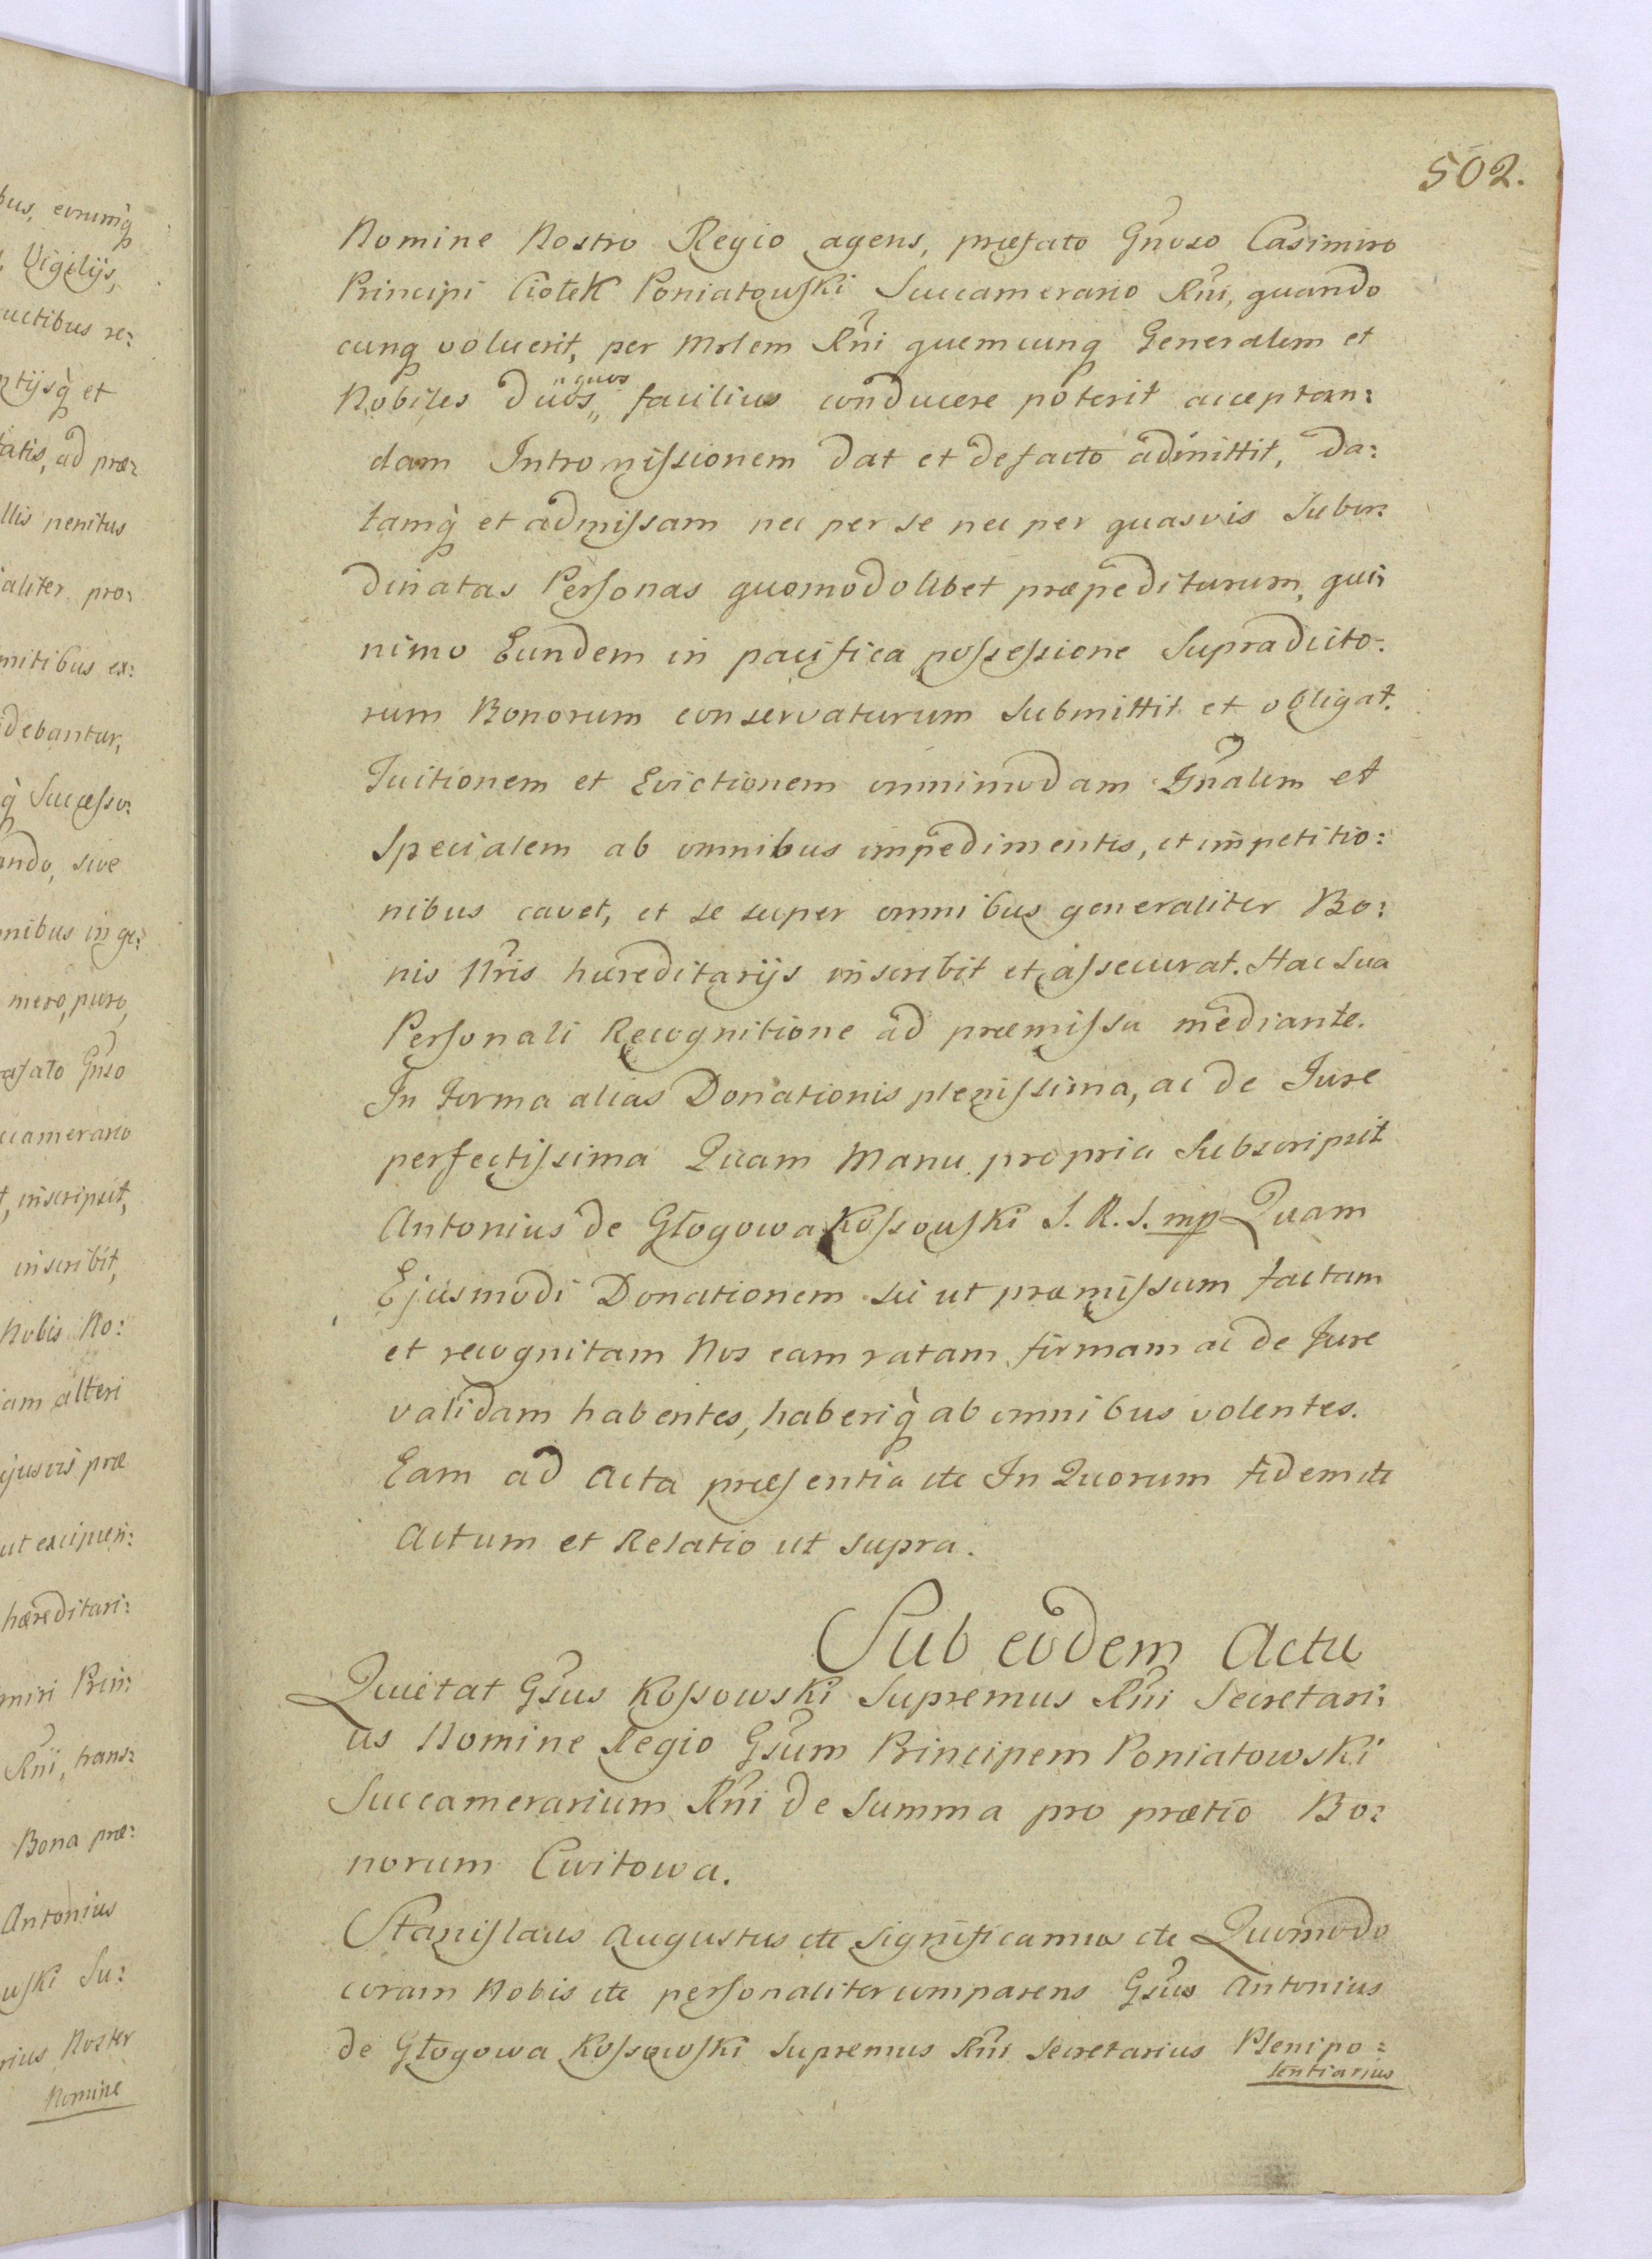 502.
Nomine Nostro Regio agens, præfato Gnoso Casimiro
Principi Ciołek Poniatowski Succamerario Rni, quando
cunq voluerit, per Mrlem Rni quemcunq Generalem et
Nobiles duos „quos„ facilius conducere poterit acceptan:
dam Intromissionem dat et de facto admittit, da:
tamq̀ et admissam nec per se nec per quasvis Subor:
dinatas Personas quomodolibet præpediturum, qui:
nimo Eundem in pacifica possessione Supradicto:
rum Bonorum conservaturum submittit et obligat.
Tuitionem et Evictionem omnimodam Gnalem et
Specialem ab omnibus impedimentis, et impetitio:
nibus cavet, et se super omnibus generaliter Bo:
nis Nris hæreditarijs inscribit et assecurat. Hac sua
Personali Recognitione ad præmissa mediante.
In Forma alias Donationis plenissima, ac de Iure
perfectissima Quam Manu propria Subscripsit
Antonius de Głogowa Kossowski S. R. S. mp Quam
Ejusmodi Donationem sic ut præmissum factam
et recognitam Nos eam ratam firmam ac de Jure
validam habentes, haberiq̀ ab omnibus volentes.
Eam ad Acta præsentia etc In Quorum fidem etc
Actum et Relatio ut supra.
Sub eodem Actu
Quietat Gsus Kossowski Supremus Rni Secretari:
us Nomine Regio Gsum Principem Poniatowski
Succamerarium Rni de Summa pro prætio Bo:
norum Cwitowa.
Stanislaus Augustus etc Significamus etc Quomodo
coram Nobis etc personaliter comparens Gsus Antonius
de Głogowa Kossowski Supremus Rni Secretarius Plenipo:
tentiarius
bus, eorumq̀
Vigilijs,
uctibus re:
ntijsq̀ et
tatis, ad præ:
llis penitus
aliter pro:
mitibus ex:
debantur,
q̀ Successo:
ando, sive
nibus in ge:
mero, puro,
afato Gnso
ccamerario
t, inscripsit,
inscribit,
Nobis No:
iam alteri
cujusvis præ
ut excipien:
hæreditari:
miri Prin:
Rni, trans:
Bona præ:
Antonius
uski Su:
rius Noster
Nomine